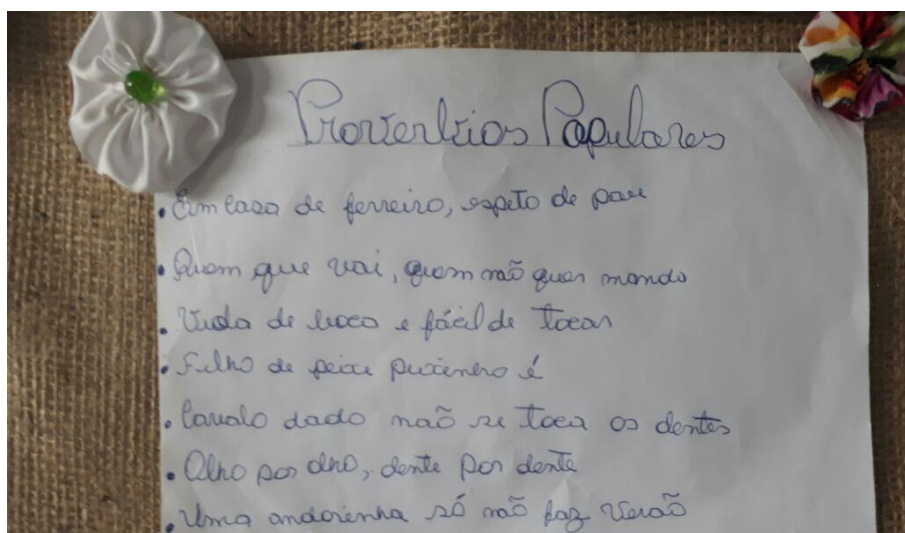 Proverbios Populares
• Em casa de ferreiro, espeto de pau
• Quem que vai, quem não quer manda
• Viola de boco e fácil de tocar
• Filho de peixe peixinho é
• Cavalo dado não se toca os dentes
• Olho por olho, dente por dente
• Uma andorinha só não faz verão